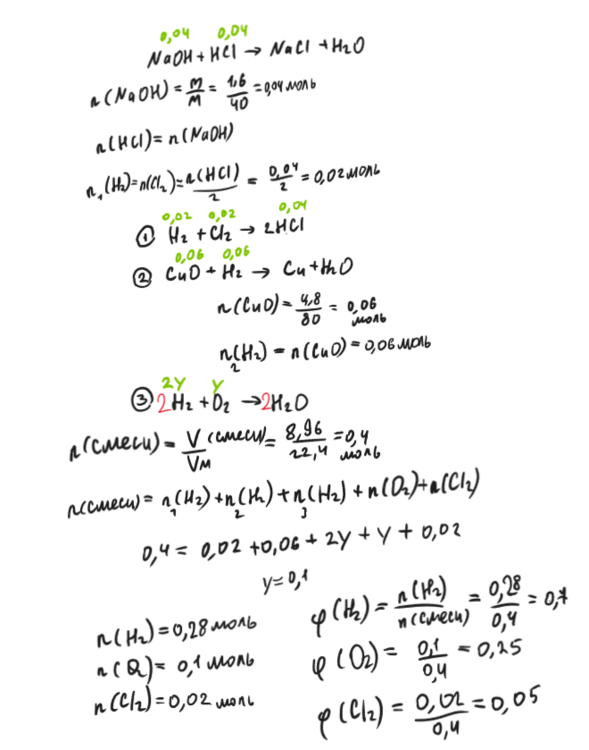 0,04 0,04
NaOH + HCl → NaCl + H₂O
n(NaOH) = m/M = 1,6/40 = 0,04 моль
n(HCl) = n(NaOH)
n₁(H₂) = n(Cl₂) = n(HCl)/2 = 0,04/2 = 0,02 моль
0,02 0,02 0,04
① H₂ + Cl₂ → 2HCl
0,06 0,06
② CuO + H₂ → Cu + H₂O
n(CuO) = 4,8/80 = 0,06 моль
n₂(H₂) = n(CuO) = 0,06 моль
2y y
③ 2H₂ + O₂ → 2H₂O
n(смеси) = V(смеси)/Vм = 8,96/22,4 = 0,4 моль
n(смеси) = n₁(H₂) + n₂(H₂) + n₃(H₂) + n(O₂) + n(Cl₂)
0,4 = 0,02 + 0,06 + 2y + y + 0,02
y = 0,1
n(H₂) = 0,28 моль
n(O₂) = 0,1 моль
n(Cl₂) = 0,02 моль
φ(H₂) = n(H₂)/n(смеси) = 0,28/0,4 = 0,7
φ(O₂) = 0,1/0,4 = 0,25
φ(Cl₂) = 0,02/0,4 = 0,05